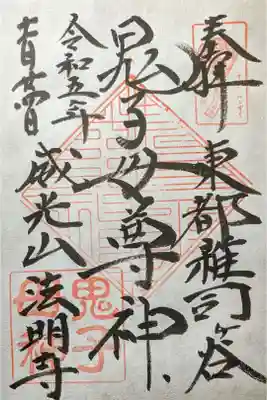 奉拝
東都雑司ヶ谷
鬼子母尊神
令和五年
威光山
法明寺
鬼子
母神